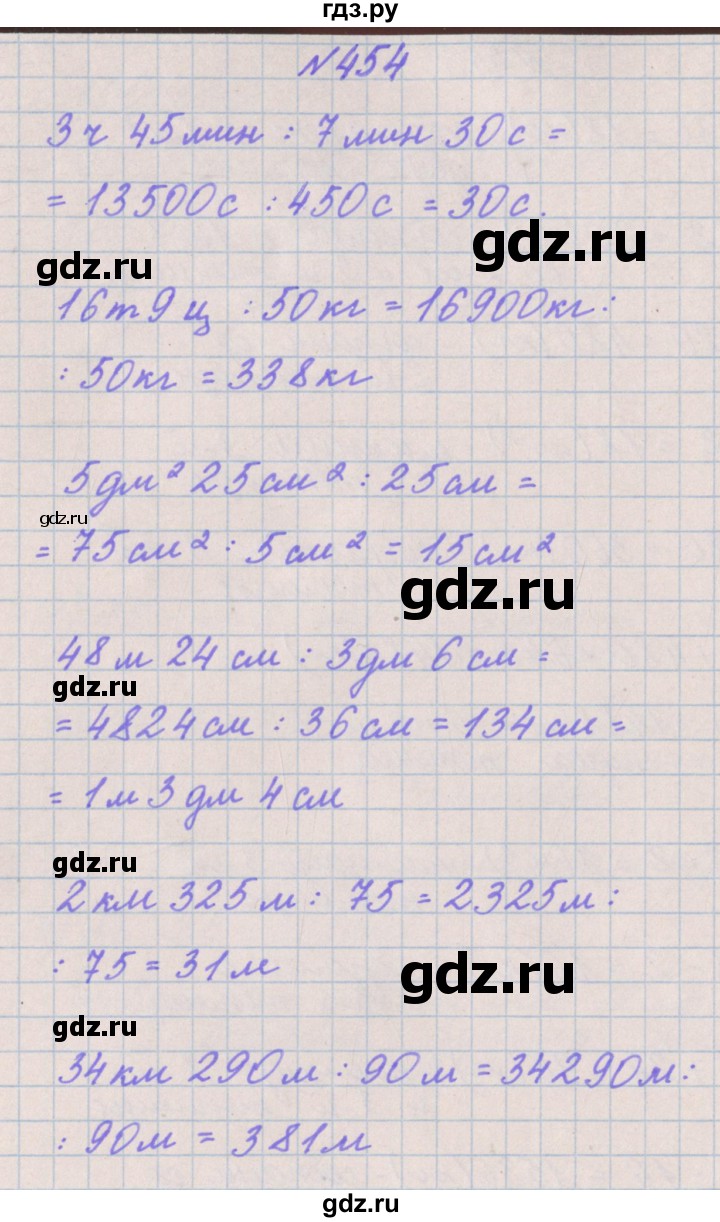 гдз.ру
№454
3 ч 45 мин : 7 мин 30 с =
= 13500 с : 450 с = 30 с.
gdz.ru
gdz.ru
16 т 9 ц : 50 кг = 16900 кг :
: 50 кг = 338 кг
5 дм² 25 см² : 25 см =
gdz.ru
= 75 см² : 5 см² = 15 см²
gdz.ru
48 м 24 см : 3 дм 6 см =
gdz.ru
= 4824 см : 36 см = 134 см =
= 1 м 3 дм 4 см
gdz.ru
2 км 325 м : 75 = 2325 м :
: 75 = 31 м
gdz.ru
gdz.ru
34 км 290 м : 90 м = 34290 м :
: 90 м = 381 м
gdz.ru